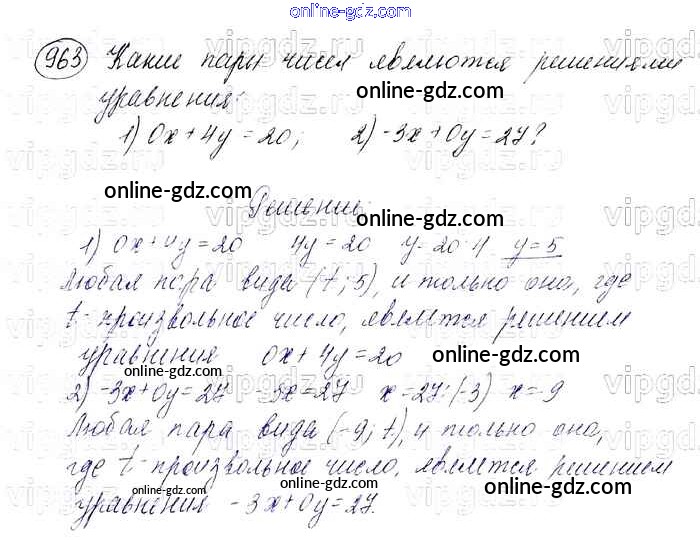 online-gdz.com
963 Какие пары чисел являются решениями
уравнения:
online-gdz.com
1) 0x+4y=20; 2) -3x+0y=27?
online-gdz.com
Решение:
online-gdz.com
1) 0x+4y=20 4y=20 y=20:4 y=5
Любая пара вида (t; 5), и только она, где
online-gdz.com
t - произвольное число, является решением
уравнения 0x+4y=20
online-gdz.com
2) -3x+0y=27 -3x=27 x=27:(-3) x=-9
online-gdz.com
Любая пара вида (-9; t), и только она,
где t - произвольное число, является решением
online-gdz.com online-gdz.com
уравнения -3x+0y=27.